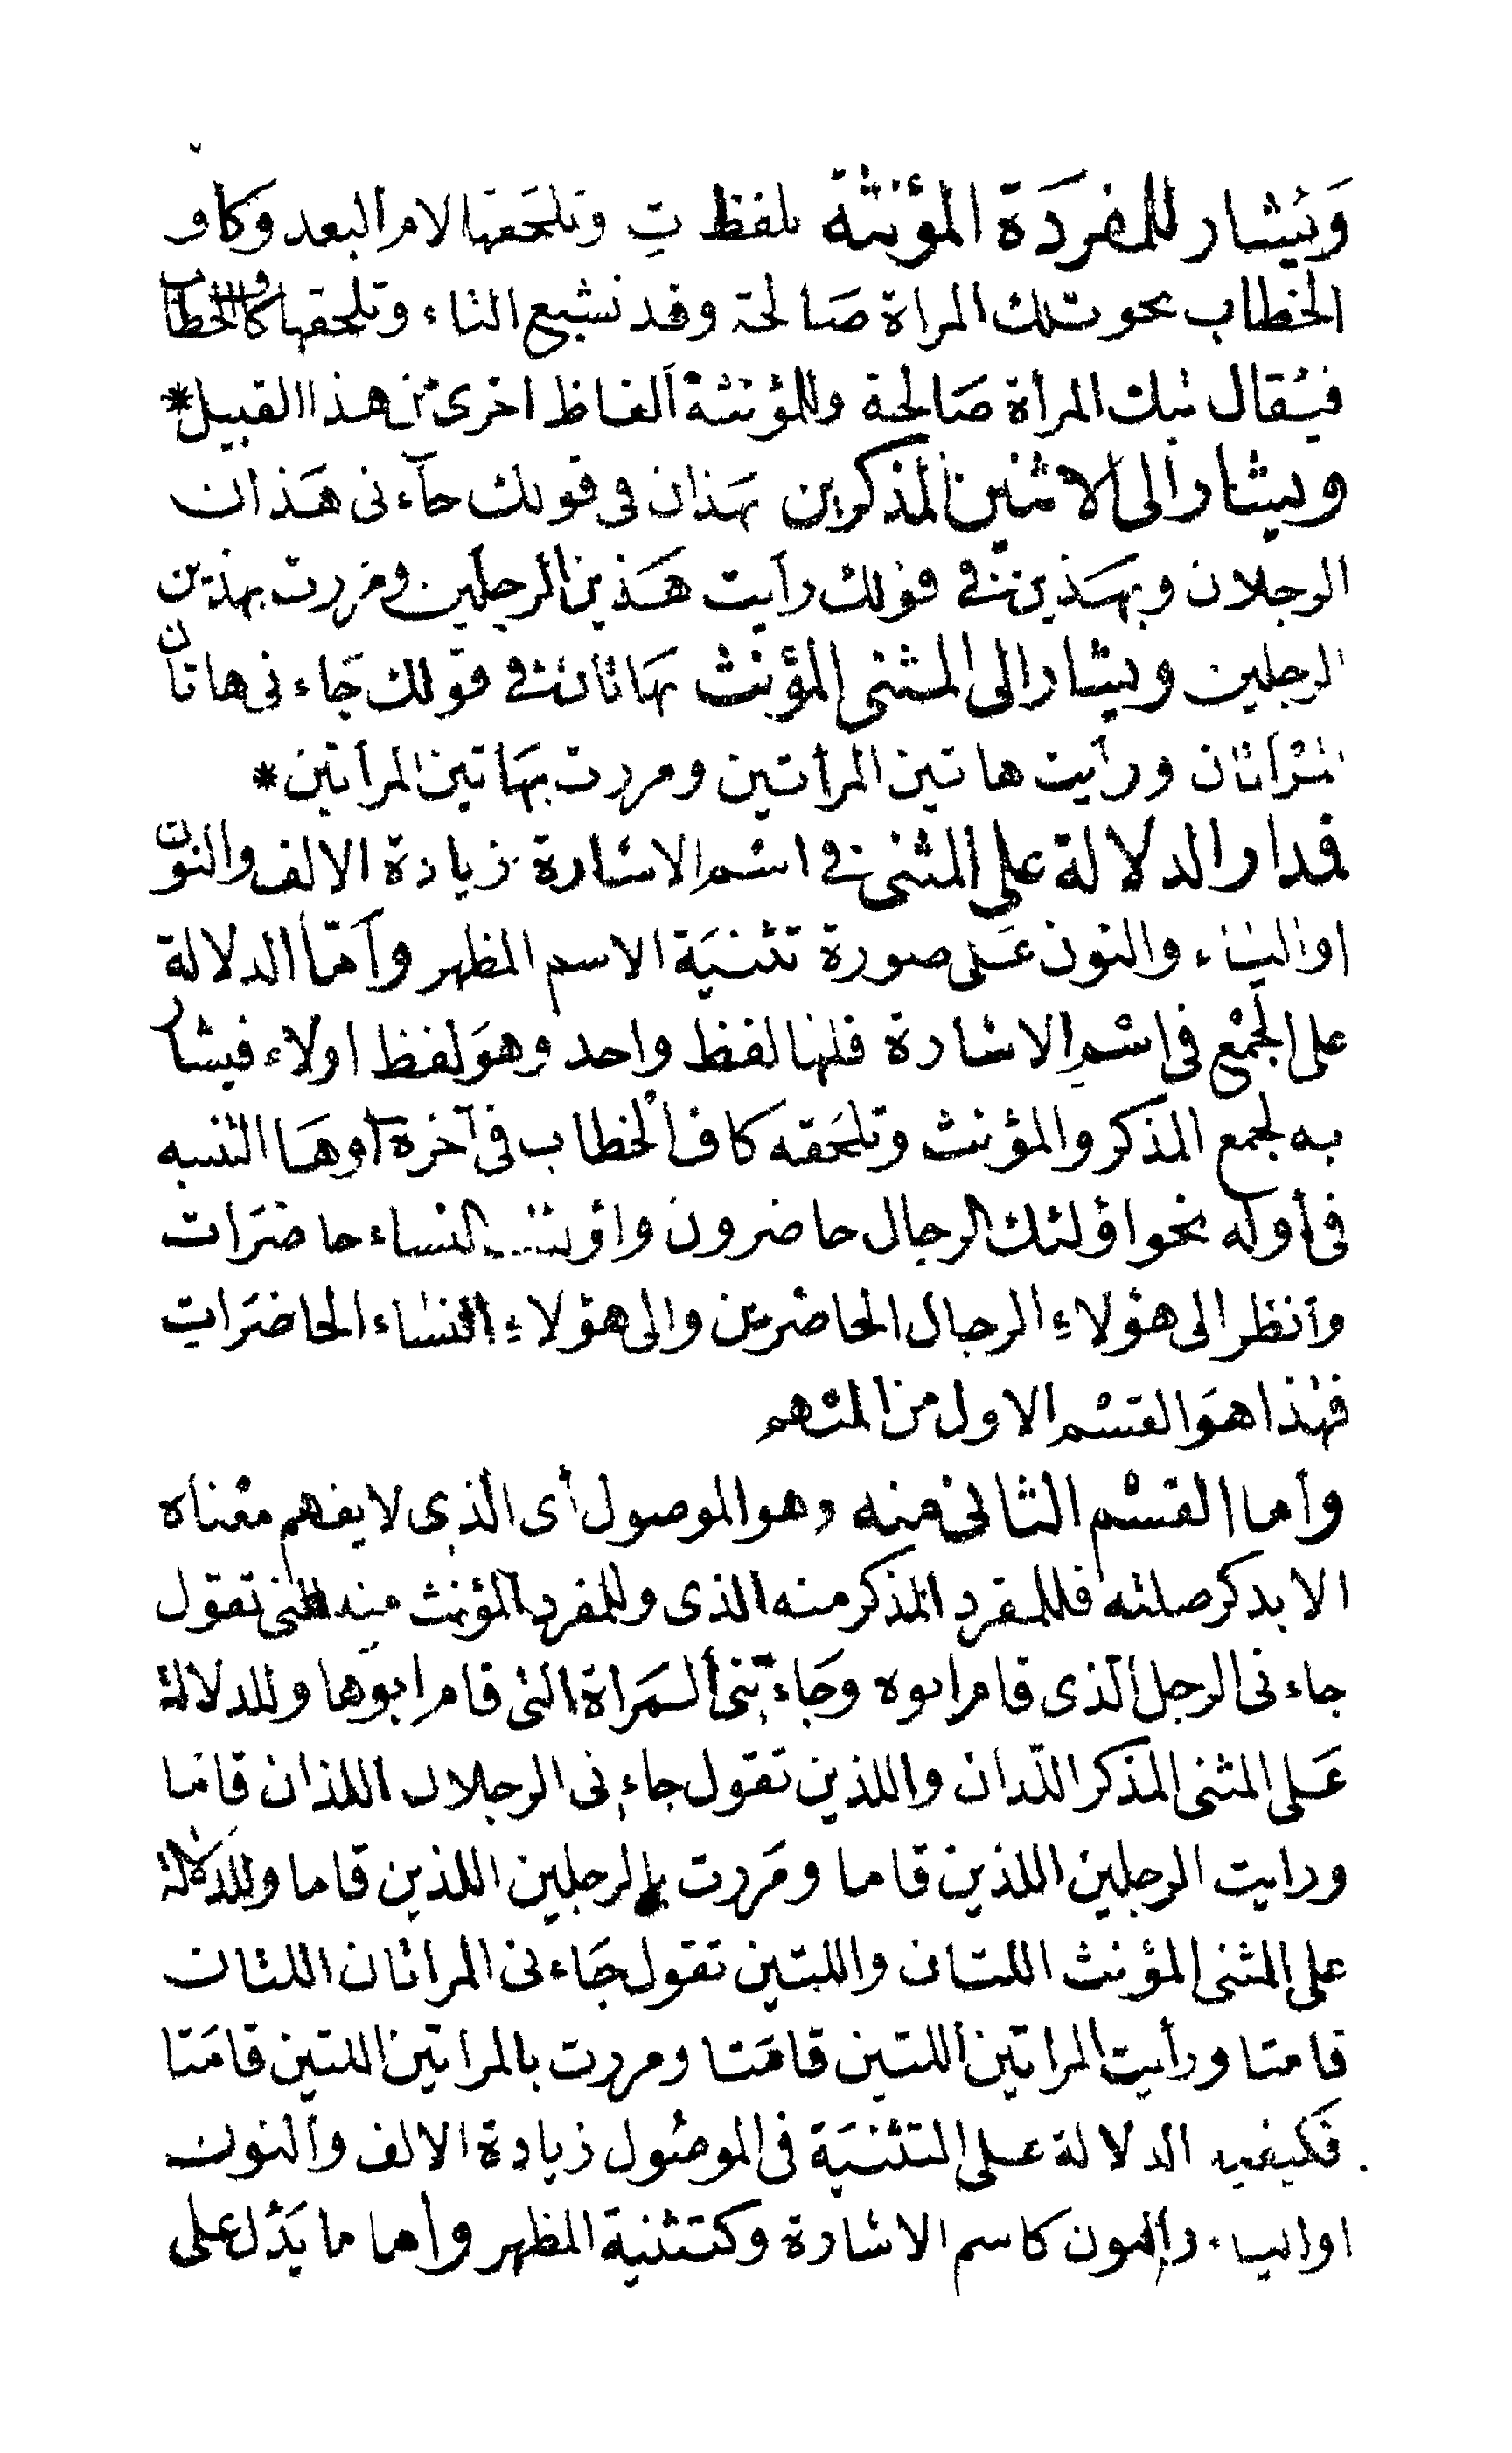 وَيُشار للمفرَدَة المؤنثة بلفظ تِ وتلحَقها لام البعد وكاف
الخطاب نحو تلك المراة صَالحة وقد نشبع التاء وتلحقها كاف الخطاب
فيُقال تيك المرأة صَالحة وللمؤنثة ألفاظ اخرى من هذا القبيل*
ويشار الى الاثنين المذكرين بهَذان في قولك جآءنى هَذان
الرجلان وبهَذين في قولك رأيت هَذين الرجلين ومررت بهذين
الرجلين ويشار الى المثنى المؤنث بهَاتان في قولك جَاءنى هاتان
المرأتان ورأيت هاتين المرأتين ومررت بهَاتين المرأتين*
فمدار الدلالة على المثنى في اسم الاشارة زيادة الالف والنون
او الياء والنون عَلى صورة تثنيَة الاسم المظهر وأمّا الدلالة
على الجمْع في اسْمِ الاشارة فلها لفظ واحد وهوَ لفظ اولاء فيشار
به لجمع المذكر والمؤنث وتلحَقه كاف الخطاب في آخره أو هَا التنبيه
في أوله نحو اولئك الرجال حاضرون واولئك النساء حاضرَات
وأنظر الى هؤلاءِ الرجال الحاضرين والى هؤلاءِ النساء الحاضرَاتِ
فهٰذا هوَ القسْم الاول من المبْهم
وأما القسْم الثانى منه وهو الموصول أى الّذى لا يفهم معْناه
الا بذكر صلته فللمفرد المذكر منه الذى وللمفرد المؤنث منه التى تقول
جاءنى الرجل الّذى قام ابوه وَجَاءتنى المَرأة التى قام ابوَها وللدلالة
عَلى المثنى المذكر اللّذان واللذين تقول جاءنى الرجلان اللذان قامَا
ورايت الرجلين اللذين قاما ومَررت بالرجلين اللذين قاما وللدلالة
على المثنى المؤنث اللتان واللتين تقول جَاءنى المراتان اللتان
قامتا ورأيت المراتين اللتين قامَتا ومررت بالمراتين اللتين قامَتا
فكيفية الدلالة عَلى التثنيَة في الموصُول زيادة الالف والنون
او الياء والنون كاسم الاشارة وكتثنية المظهر وأما ما يَدُل على